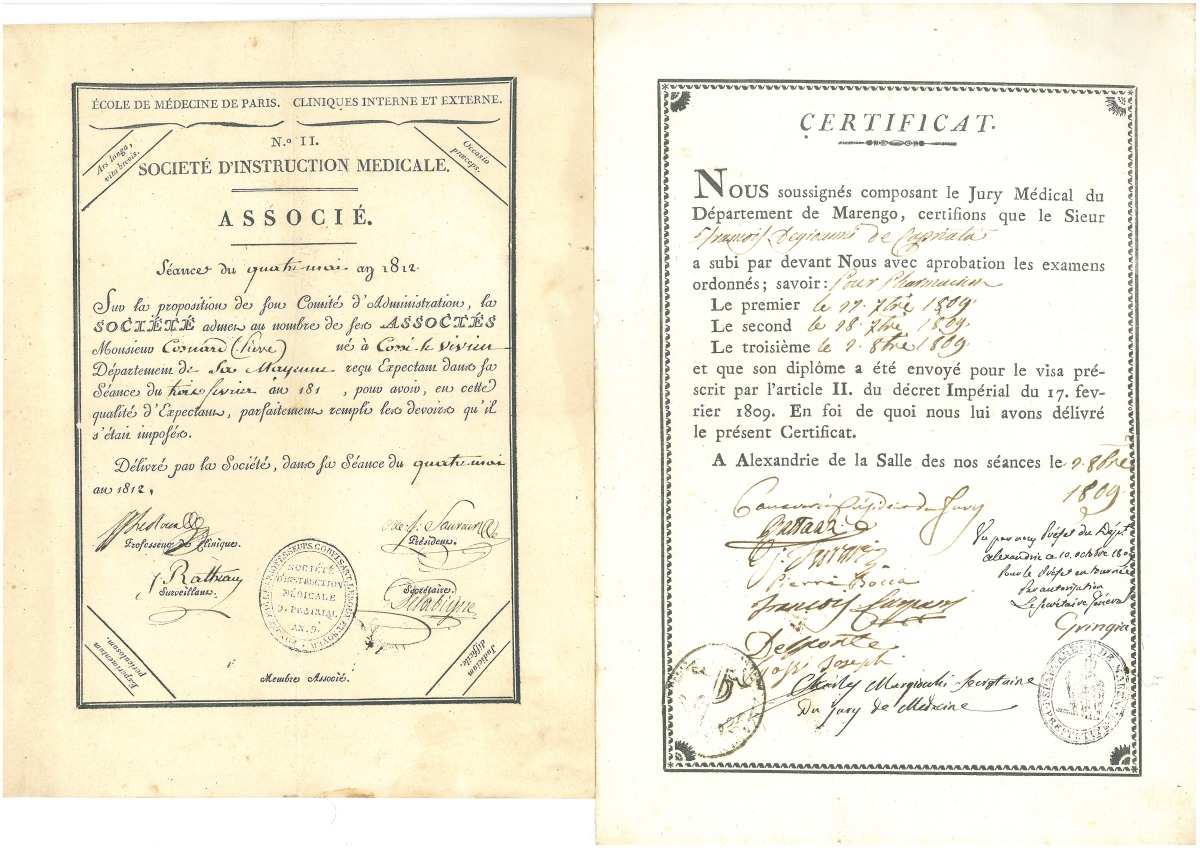 ÉCOLE DE MÉDECINE DE PARIS. CLINIQUES INTERNE ET EXTERNE.
Ars longa,
vita brevis.
Occasio
præceps.
N.º II.
SOCIETÉ D'INSTRUCTION MEDICALE.
ASSOCIÉ.
Séance du quatre mai an 1812.
Sur la proposition de son Comité d'Administration, la
SOCIÉTÉ admet au nombre de ses ASSOCIÉS
Monsieur né à Cossé le Vivien
Département de la Mayenne reçu Expectant dans sa
Séance du trois fevrier an 181 , pour avoir, en cette
qualité d'Expectant, parfaitement rempli les devoirs qu'il
s'était imposés.
Délivré par la Société, dans sa Séance du quatre mai
an 1812.
Professeur de Clinique.
Président.
Rathieau
Surveillant.
Secrétaire.
SOCIÉTÉ
D'INSTRUCTION
MÉDICALE
PRAIRIAL
AN. 9.
Experimentum
periculosum.
Judicium
difficile.
Membre Associé.
CERTIFICAT.
NOUS soussignés composant le Jury Médical du
Département de Marengo, certifions que le Sieur
François Degioanni de Capriata
a subi par devant Nous avec aprobation les examens
ordonnés; savoir: Pour Pharmacien
Le premier le 27 7bre 1809.
Le second le 28 7bre 1809.
Le troisième le 2. 8bre 1809.
et que son diplôme a été envoyé pour le visa pré-
scrit par l'article II. du décret Impérial du 17. fev-
rier 1809. En foi de quoi nous lui avons délivré
le présent Certificat.
A Alexandrie de la Salle des nos séances le 2. 8bre
1809
du Jury
Pierre Rocca
François
Delponte
Joseph
Secrétaire
Du Jury de Médecine
Vu par nous Préfet du Dépt.
alexandrie ce 10. octobre 180
Pour le Préfet en tournée
Par autorisation
Le Secrétaire Général